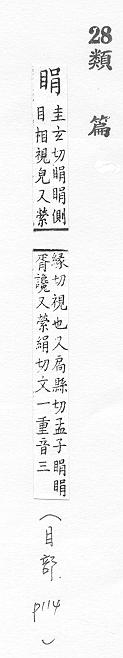 28類篇
睊
圭玄切睊睊側
目相視皃又縈
緣切視也又扃縣切孟子睊睊
胥讒又縈絹切文一重音三
(目部. p114)